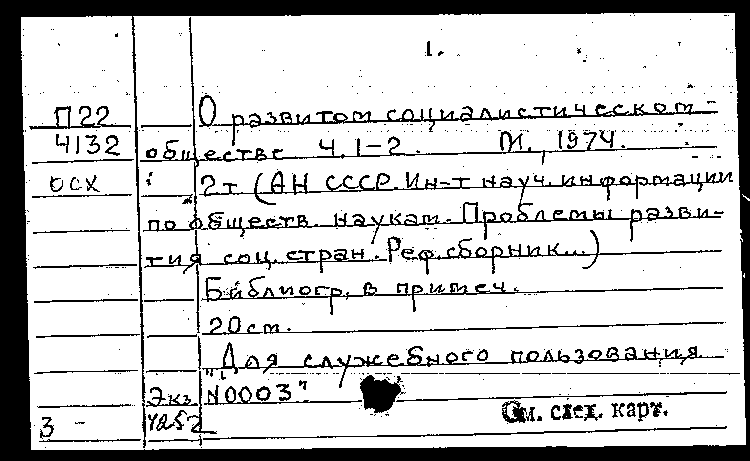 1.
П22 О развитом социалистическом
4132 обществе Ч.1-2. М., 1974.
осх 2т (АН СССР. Ин-т науч. информации
по обществ. наукам. Проблемы разви-
тия соц. стран. Реф. сборник...)
Библиогр. в примеч.
20см.
"Для служебного пользования
Экз. N0003".
3 - 4252 См. след. карт.